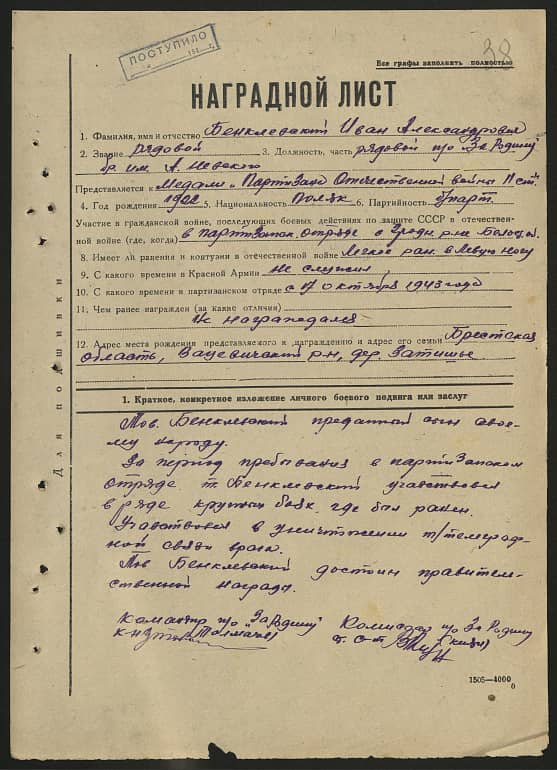 ПОСТУПИЛО
38
Все графы заполнять полностью
НАГРАДНОЙ ЛИСТ
1. Фамилия, имя и отчество Бенклевский Иван Александрович
2. Звание рядовой 3. Должность, часть рядовой п/о За Родину
бр. им. А. Невского
Представляется к Медали „Партизану Отечественной войны II ст.
4. Год рождения 1902 5. Национальность Поляк 6. Партийность б/парт.
Участие в гражданской войне, последующих боевых действиях по защите СССР и отечествен-
ной войне (где, когда) в партизанск. отряде
8. Имеет ли ранения и контузии в отечественной войне Легкое ран. в левую ногу
9. С какого времени в Красной Армии не служил
10. С какого времени в партизанском отряде с 17 октября 1943 года
11. Чем ранее награжден (за какие отличия)
Не награждался
12. Адрес места рождения представляемого к награждению и адрес его семьи Брестская
область, р-н, дер. Затишье
Для подшивки
1. Краткое, конкретное изложение личного боевого подвига или заслуг
Тов. Бенклевский преданный сын свое-
му народу.
За период пребывания в партизанском
отряде т. Бенклевский участвовал
в ряде крупных боях, где был ранен.
Участвовал в уничтожении т/телеграф-
ной связи врага.
Тов Бенклевский достоин правител-
ственной награды.
Командир п/о „За Родину" Комиссар п/о За Родину
к-н
1505—4000